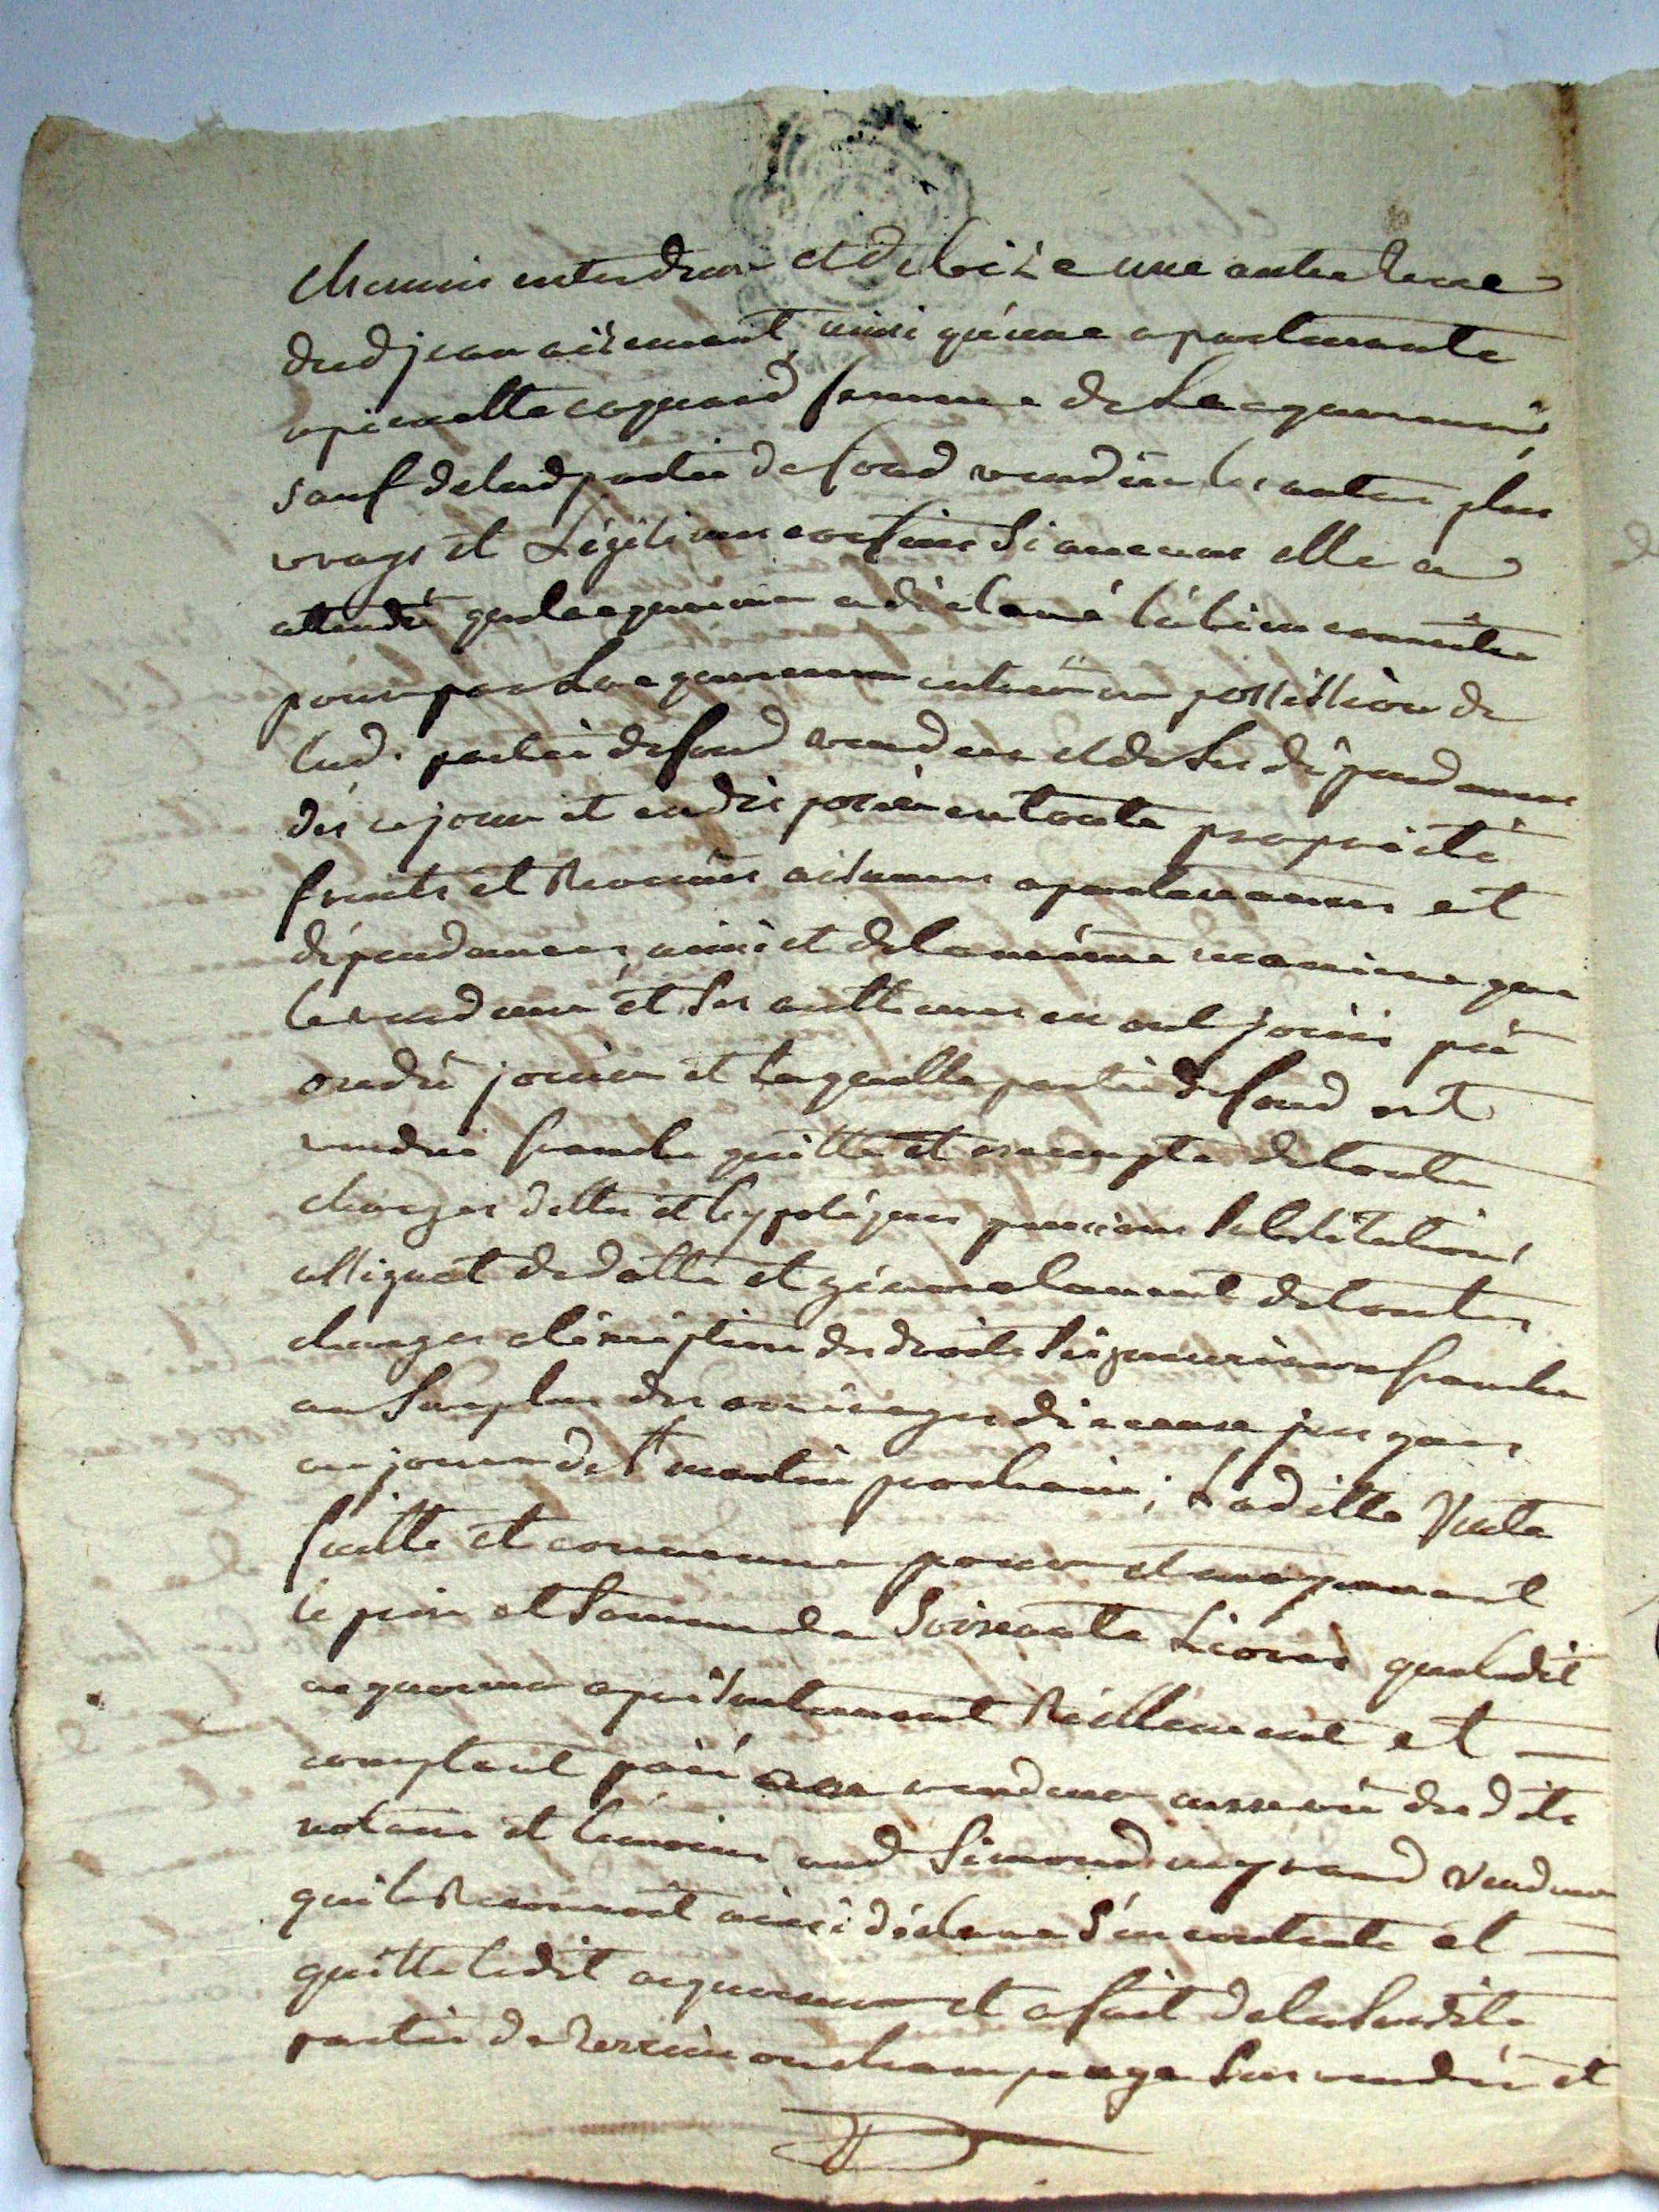 chemin entredeux et de bize une autre terre
dud jean aisement, ainsi qu'une apartenante
a pierrette coquard femme de Lacquereur,
sauf delad partie de fond vendue les autres plus
vrays et Légitimes confins Si aucuns elle a
attendu que lacquereur a déclaré la bien connoitre
pour par Lacquereur entrer en possession de
lad. partie de fond vendue et de Ses dépendances
dès ce jour et en disposer en toute propriété
fruits et Revenus aisances apartenances et
dépendances ainsi et de la même maniere que
le vendeur et Ses autheurs en ont joüis pû
ou dû joüir et Laquelle partie de fond est
vendüe franche quitte et exempte de toute
charges dettes et hypotéques pensions Substitutions
assignat de dotte et généralement de toutes
charges à l'exeption des droits Seigneuriaux franche
au Surplus des arrérages d'iceux jusques
au jour de St martin prochain; Laditte Vente
faitte et convenue pour et moyennant
le prix et Somme de Soixante Livres que ledit
acquereur a présentement Réellement et
comptant païé au vendeur au vû desdits
notaire et témoins aud Simond coquard vendeur
qui le Reconnoît ainsi déclare S'en contente et
quitte ledit acquereur et a fait de la Susdite
partie de terrein ou champeage Sus vendüe et